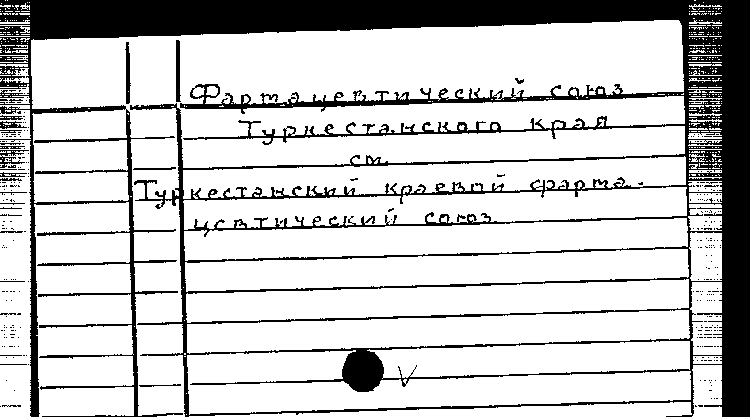 Фармацевтический союз
Туркестанского края
см.
Туркестанский краевой фарма-
цевтический союз
V